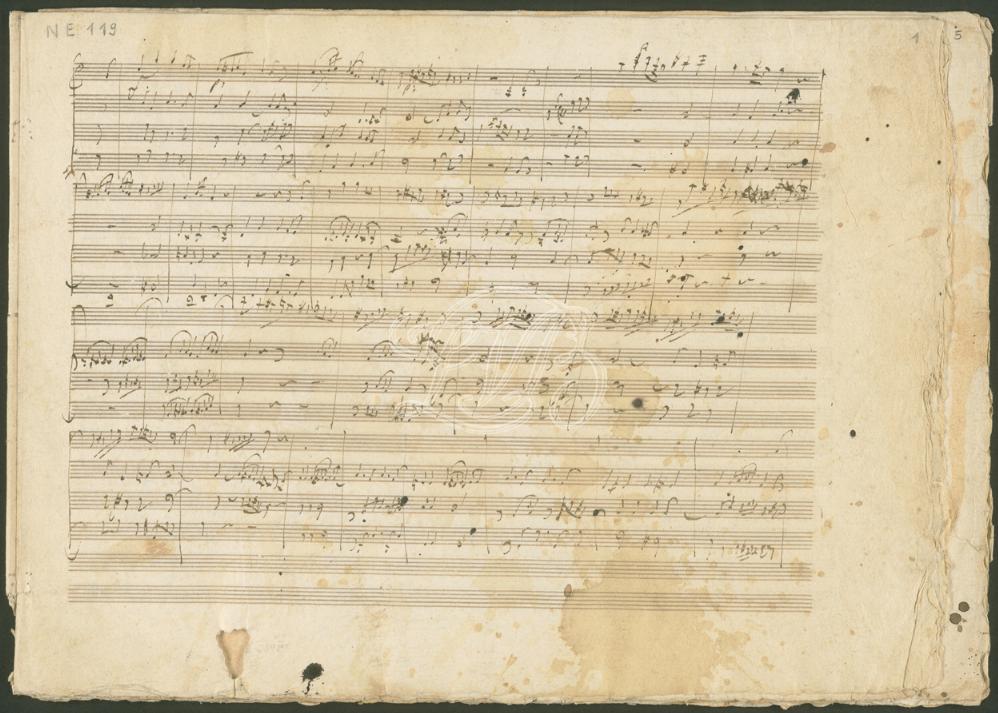 NE 119
1 5